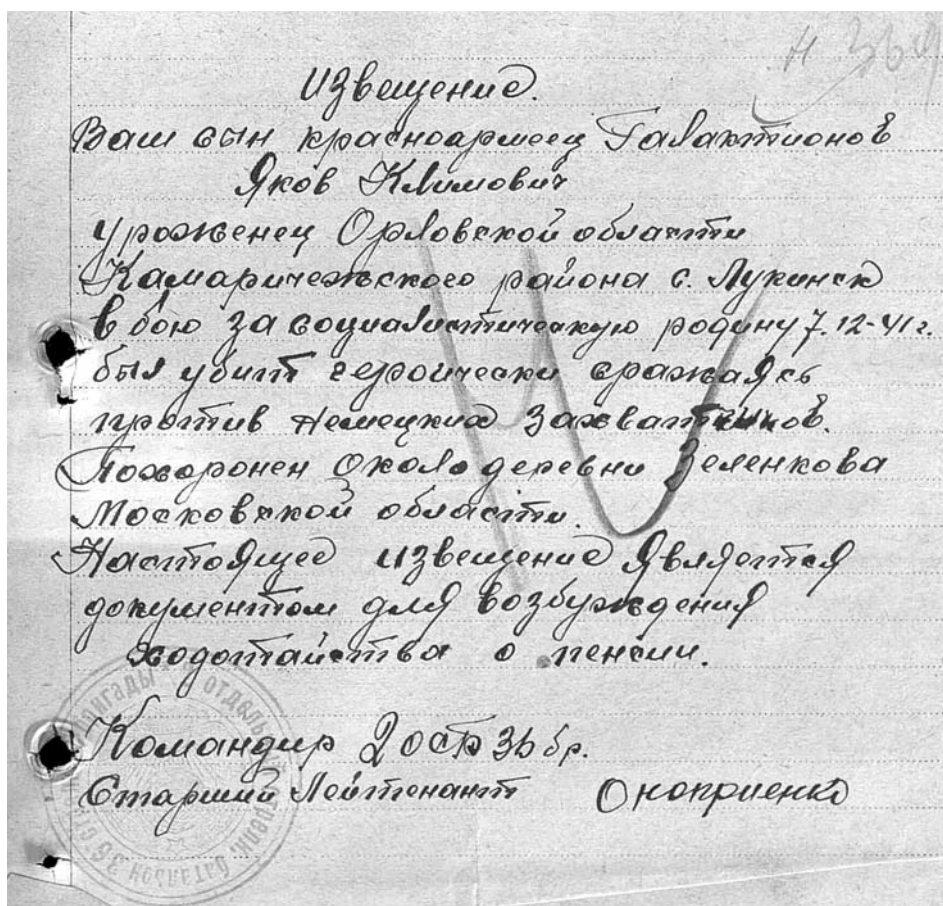 Н 369
Извещение.
Ваш сын красноармеец Галактионов
Яков Климович
Уроженец Орловской области
Камаричежского района с. Лукинск
в бою за социалистическую родину 7.12-41 г.
был убит героически сражаясь
против немецких захватчиков.
Похоронен около деревни Зеленкова
Московской области.
Настоящее извещение является
документом для возбуждения
ходотайства о пенсии.
Командир 2 осб 36 бр.
Старший Лейтенант Оноприенко
бригады отдельн стрелк. батальон 36